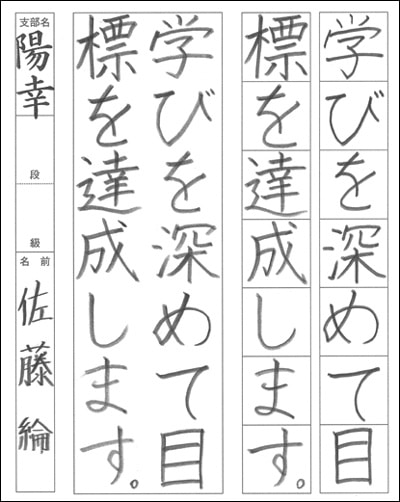 学びを深めて目
標を達成します。
学びを深めて目
標を達成します。
支部名
陽幸
段
級
名前
佐藤綸